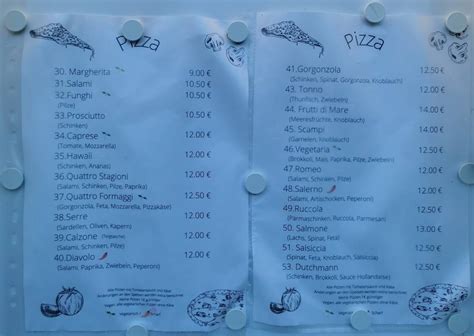 Pizza
30. Margherita 9.00 €
31.Salami 10.50 €
32.Funghi 10.50 €
(Pilze)
33.Prosciutto 10.50 €
(Schinken)
34.Caprese 12.00 €
(Tomate, Mozzarella)
35.Hawaii 12.00 €
(Schinken, Ananas)
36.Quattro Stagioni 12.00 €
(Salami, Schinken, Pilze, Paprika)
37.Quattro Formaggi 12.50 €
(Gorgonzola, Feta, Mozzarella, Pizzakäse)
38.Serre 12.00 €
(Sardellen, Oliven, Kapern)
39.Calzone 12.00 €
(Salami, Schinken, Pilze)
40.Diavolo 12.00 €
(Salami, Paprika, Zwiebeln, Peperoni)
Pizza
41.Gorgonzola 12.50 €
(Schinken, Spinat, Gorgonzola, Knoblauch)
43. Tonno 12.00 €
(Thunfisch, Zwiebeln)
44. Frutti di Mare 14.00 €
(Meeresfrüchte, Knoblauch)
45. Scampi 14.00 €
(Garnelen, Knoblauch)
46.Vegetaria 12.50 €
(Brokkoli, Mais, Paprika, Pilze, Zwiebeln)
47.Romeo 12.50 €
(Salami, Schinken, Pilze)
48.Salerno 12.50 €
(Salami, Peperoni)
49.Ruccola 12.50 €
(Parmaschinken, Ruccola, Parmesan)
50. Salmone 13.00 €
(Lachs, Spinat, Feta)
51. Salsiccia 12.50 €
(Spinat, Feta, Knoblauch)
53. Dutchmann 12.50 €
(Schinken, Brokkoli, Sauce Hollandaise)